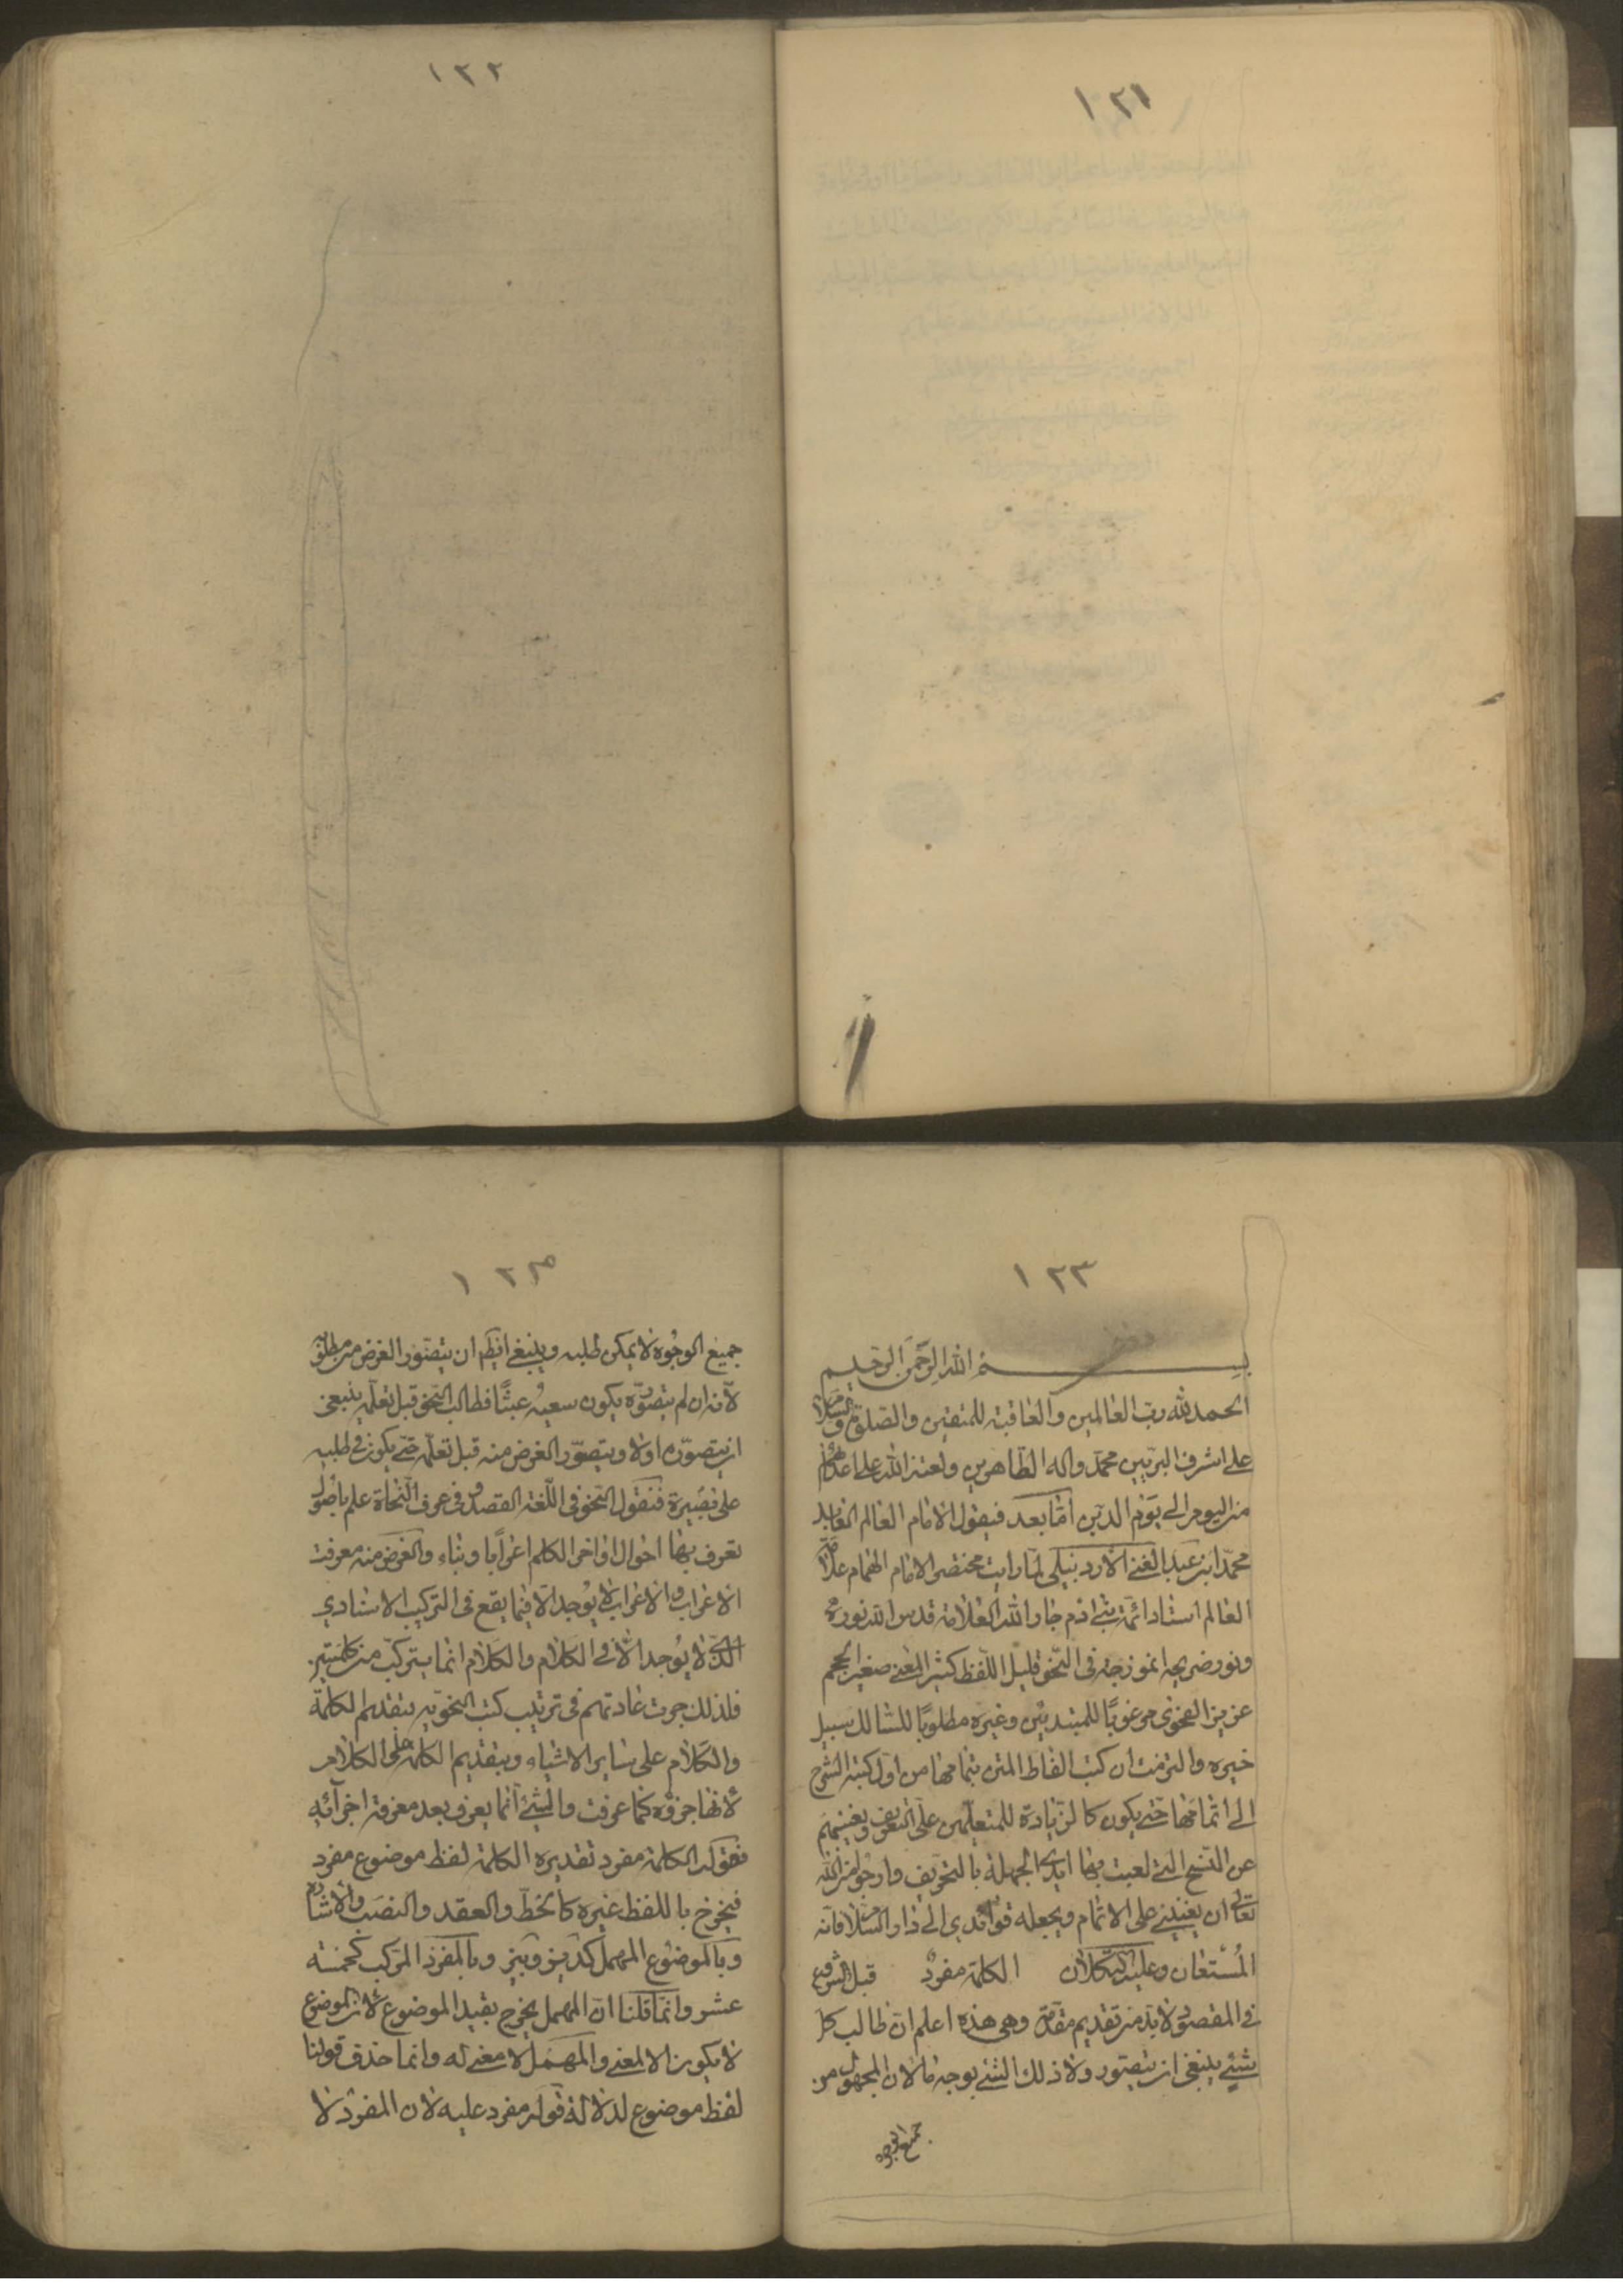 ١٢١
١٢٢
١٢٣
بسم الله الرحمن الرحيم
الحمد لله رب العالمين والعاقبة للمتقين والصلوة والسلام
على اشرف البريين محمد واله الطاهرين ولعنة الله على اعدائهم
من اليوم الى يوم الدين امّا بعد فيقول الامام العالم
محمد ابن عبد الغني الاردبيلى لما رايت مختصر الامام الهمام علامة
العالم استاد ائمة بني ادم جار الله العلامة قدس الله نوره
ونور ضريحه انموزجة فى النحو قليل اللفظ كثير المعنى صغير الحجم
عزيز الفحوى مرغوبًا للمبتديين وغيره مطلوبًا للسالك سبيل
خيره والتزمت ان كتب الفاظ المتن بتمامها من اول كتبة الشرح
الى اتمامها حتى يكون كالزيادة للمتعلمين على التعريف ويغنيهم
عن النسخ التي لعبت بها ايدى الجهلة بالتحريف وارجو من الله
تعالى ان يعينني على الاتمام ويجعله قوائدي الى دار السلام فانه
المُسْتعان وعليه التكلان الكلمة مفردٌ قبل الشروع
في المقصود لا بد من تقديم مقدمة وهى هذه اعلم انّ طالب كل
شئ ينبغى ان يتصور ولا ذلك الشئ بوجه ما لان المجهول من
جميع الوجوه
١٢٤
جميع الوجُوه لا يمكن طلبه وينبغي ايضًا ان يتصوّر الغرض من مطلوبه
لأنه ان لم يتصوّره يكون سعيه عبثًا فطالب النحو قبل تعلّمه ينبغى
ان يتصوّره اولا ويتصوّر الغرض منه قبل تعلّمه حتّى يكون فى طلبه
على بصيرة فنقول النحو فى اللّغة القصد وفى عرف النحاة علم باصُول
تعرف بها احوال اواخر الكلم اعرابا وبناء والغرض منه معرفت
الاعراب والاعراب لا يوجد الّا فيما يقع فى التركيب الاسنادي
الذى لا يوجد الّا فى الكلام والكلام انما يتركّب من كلمتين
فلذلك جرت عادتهم فى ترتيب كتب النحويه بتقديم الكلمة
والكلام على ساير الاشياء وبتقديم الكلمة على الكلام
لأنها جزؤه كما عرفت والشئ انما يعرف بعد معرفة اجزائه
فقوله الكلمة مفرد تقديره الكلمة لفظ موضوع مفرد
فيخرج باللفظ غيره كالخطّ والعقد والنصب والاشارة
وبالموضوع المهمل كديز وبيز وبالمفرد المركب كخمسة
عشر وانما قلنا انّ المهمل يخرج بقيد الموضوع لان الموضوع
لا يكون الا لمعنى والمهمَل لا معنى له وانما حذف قولنا
لفظ موضوع لدلالة قوله مفرد عليه لان المفرد لا